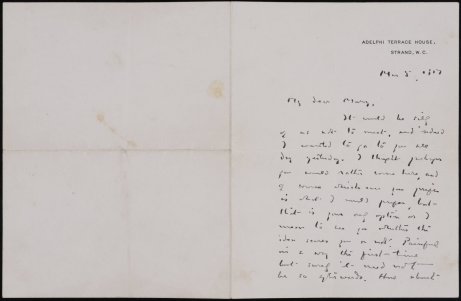 ADELPHI TERRACE HOUSE,
STRAND, W.C.
My dear Mary,
It would be silly
of us not to meet, and indeed
I wanted to go to you all
day yesterday. I thought perhaps
you would rather come here, and
of course whichever you prefer
is what I would prefer, but
that is your only option as I
mean to see you whether the
idea scares you or not. Painful
in a way the first time
but surely it need not
be so afterwards. How about